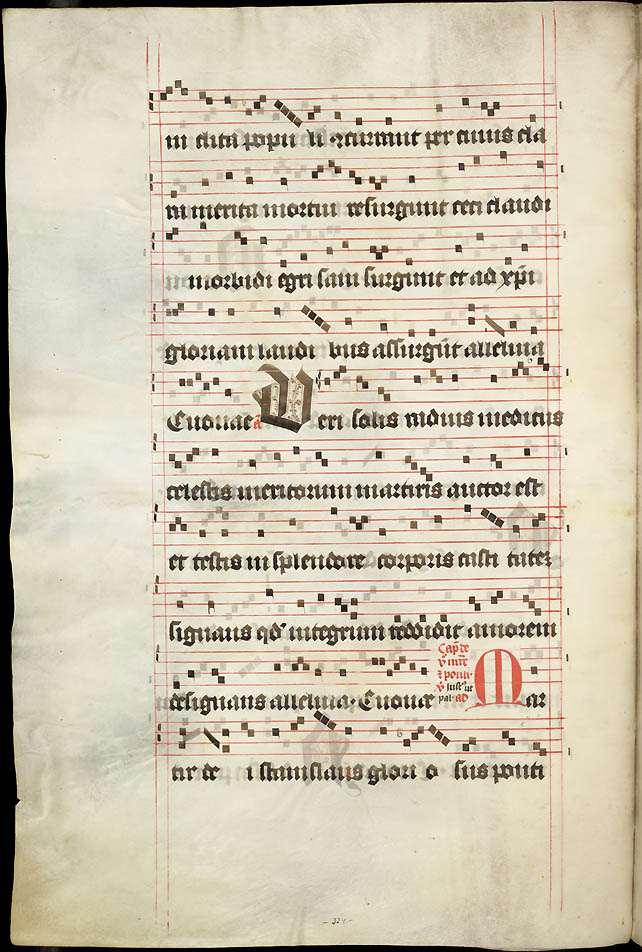 in clita popu li occurrunt per cuius cla
ra merita mortui resurgunt ceci claudi
morbidi egri sani surgunt et ad xpi
gloriam laudi bus assurgūt alleluia
Euouae a Veri solis radius medicus
celestis meritorum martiris auctor est
et testis in splendore corporis casti
signans qd integrum reddidit amorem
resignans alleluia. Euouae Mar
tir de i stanislaus glori o sus ponti